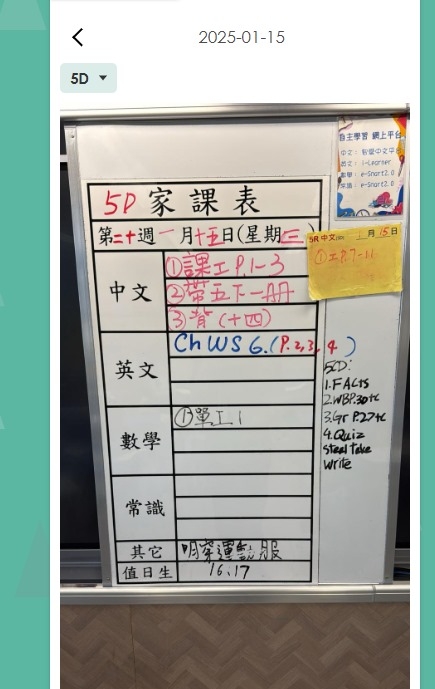 2025-01-15
5D
自主學習 網上平台
中文：智愛中文平台
英文：i-Learner
數學：e-Smart2.0
常識：e-Smart2.0
5D 家課表
第二十週一月十五日(星期三)
5R 中文 1月15日
①工P.7-11
中文
①課工P.1-3
②帶五下一冊
③背(十四)
英文
Ch WS 6.(P.2,3,4)
數學
①單工1
常識
其它
明穿運動服
值日生
16、17
5CD:
1.FACTS
2.WBP.30+c
3.Gr P.27+c
4.Quiz
steal take
write